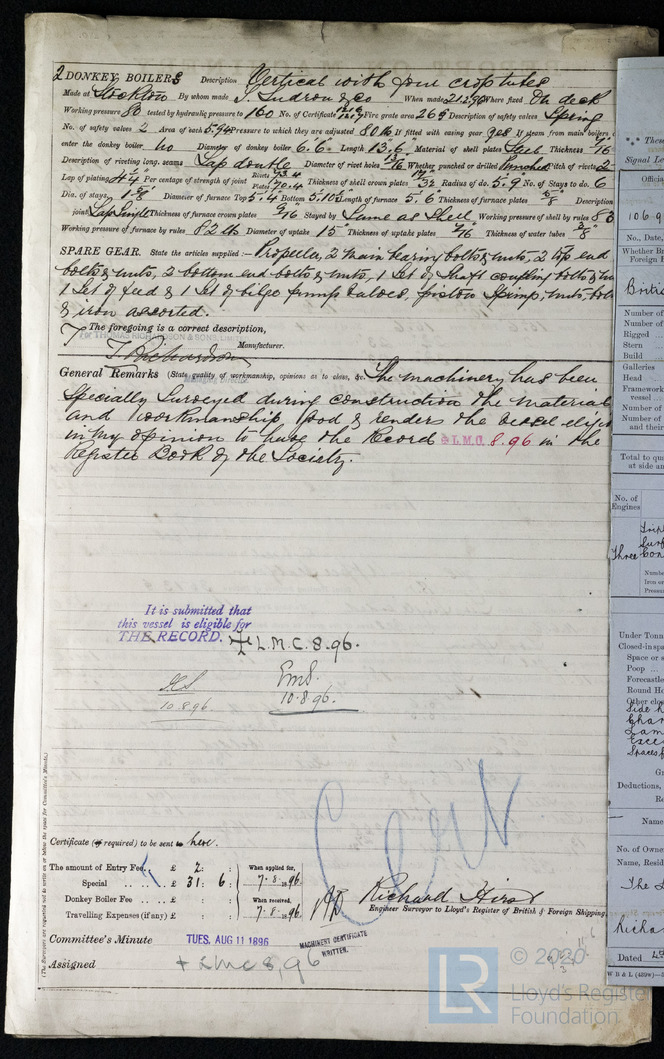 2 DONKEY BOILERS Description Vertical with four cross tubes
Made at Stockton By whom made T. Sudron & Co When made 21.2.96 Where fixed On deck
Working pressure 80 tested by hydraulic pressure to 160 No. of Certificate Fire grate area 26.9 Description of safety valves Spring
No. of safety valves 2 Area of each 5.94 Pressure to which they are adjusted 80 lb If fitted with easing gear yes If steam from main boilers
enter the donkey boiler No Diameter of donkey boiler 6'.6" Length 13'.6" Material of shell plates Steel Thickness 7/16
Description of riveting long. seams Lap double Diameter of rivet holes 13/16 Whether punched or drilled Punched Pitch of rivets 2
Lap of plating 4 1/4 Per centage of strength of joint Rivets 73.4 Plates 70.4 Thickness of shell crown plates 17/32 Radius of do. 5'.9" No. of Stays to do. 6
Dia. of stays 1 5/8 Diameter of furnace Top 5'.4" Bottom 5.10 Length of furnace 5'.6 Thickness of furnace plates Description
joint Lap Single Thickness of furnace crown plates 9/16 Stayed by Same as Shell Working pressure of shell by rules 83
Working pressure of furnace by rules 82 lb Diameter of uptake 15" Thickness of uptake plates 7/16 Thickness of water tubes 3/8"
SPARE GEAR. State the articles supplied:— Propeller, 2 main bearing bolts & nuts, 2 top end
bolts & nuts, 2 bottom end bolts & nuts, 1 Set of shaft coupling bolts & nuts
1 Set of feed & 1 Set of bilge pump valves, piston springs, nuts, bolts
& iron assorted.
The foregoing is a correct description,
For THOMAS RICHARDSON & SONS, LIMITED
T Richardson Manufacturer.
Managing Director
General Remarks (State quality of workmanship, opinions as to class, &c. The machinery has been
Specially Surveyed during construction the material
and workmanship good & renders the vessel eligib
in my opinion to have the Record + L.M.C. 8.96 in the
Register Book of the Society.
It is submitted that
this vessel is eligible for
THE RECORD. + L.M.C. 8.96.
10.8.96
10.8.96.
(The Surveyors are requested not to write on or below the space for Committee's Minute.)
Certificate (if required) to be sent to here.
The amount of Entry Fee . £ 2 : : When applied for,
Special .. .. .. £ 31 : 6 : 7.8.1896.
Donkey Boiler Fee .. .. £ : : When received,
Travelling Expenses (if any) £ : : 7.8.1896
Richard Hirst
Engineer Surveyor to Lloyd's Register of British & Foreign Shipping.
Committee's Minute TUES. AUG 11 1896
MACHINERY CERTIFICATE
WRITTEN.
Assigned + LMC 8,96
These
Signal Le
Officia
106.9
No., Date,
Whether Br
Foreign B
Britis
Number of
Number of
Rigged
Stern
Build
Galleries
Head
Framework
vessel
Number of
Number of
and their
Total to qu
at side am
No. of
Engines
Three
Under Tonn
Closed-in spa
Space or s
Poop
Forecastle
Round H
Other clos
Side h
Spaces f
Gr
Deductions,
Re
Name
No. of Owne
Name, Resid
The
Richa
Dated
W B & L
LR © 2020
Lloyd's Registe
Foundation